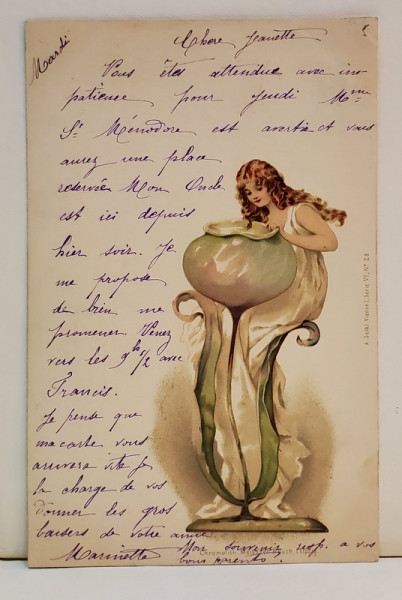 Mardi
Chère Jeanette
Vous êtes attendue avec im
patience pour jeudi Mme
St Ménodore est avertie et vous
aurez une place
reservée Mon Oncle
est ici depuis
hier soir. Je
me propose
de bien me
promener Venez
vers les 9h 1/2 avec
Francis.
Je pense que
ma carte vous
arrivera vite je
la charge de vos
donner les gros
baisers de votre amie
Marinette Mon souvenir resp. a vos
bons parents.